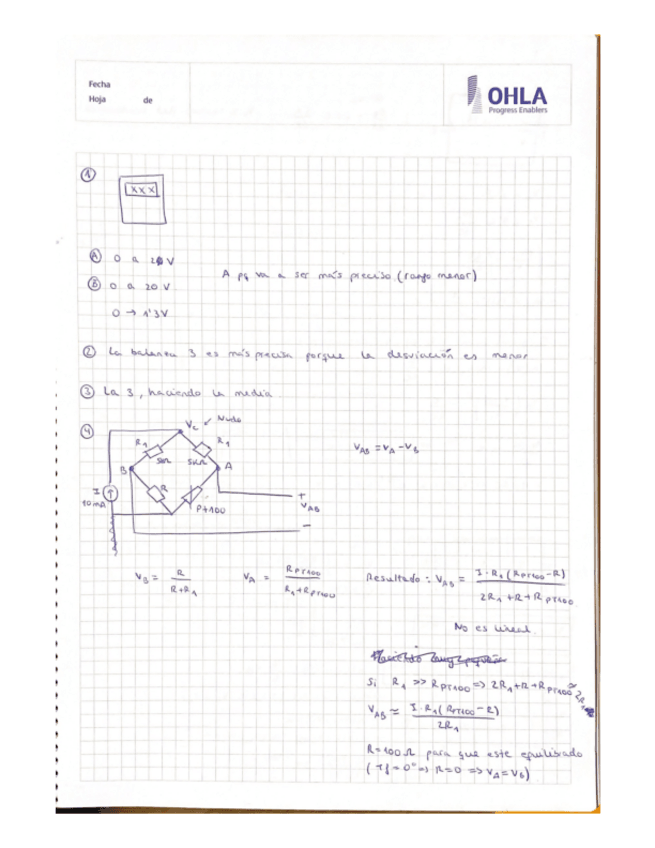 Fecha
Hoja de
OHLA
Progress Enablers
①
XXX
Ⓐ 0 a 2 V
Ⓑ 0 a 20 V
A pq va a ser más preciso (rango menor)
0 → 1'3V
② La balanza 3 es más precisa porque la desviación es menor
③ La 3, haciendo la media
④
Vc ↙ Nudo
R1
R1
5kΩ
5kΩ
B
A
I
10 mA
R
Pt100
+
VAB
-
VAB = VA - VB
VB = R / (R+R1)
VA = RPT100 / (R1+RPT100)
Resultado: VAB = I·R1(RPT100-R) / (2R1+R+RPT100)
No es lineal.
Si R1 >> RPT100 => 2R1+R+RPT100 ≈ 2R1
VAB ≈ I·R1(RPT100-R) / 2R1
R=100Ω para que este equilibrado
(Tf=0° => R=0 => VA=VB)